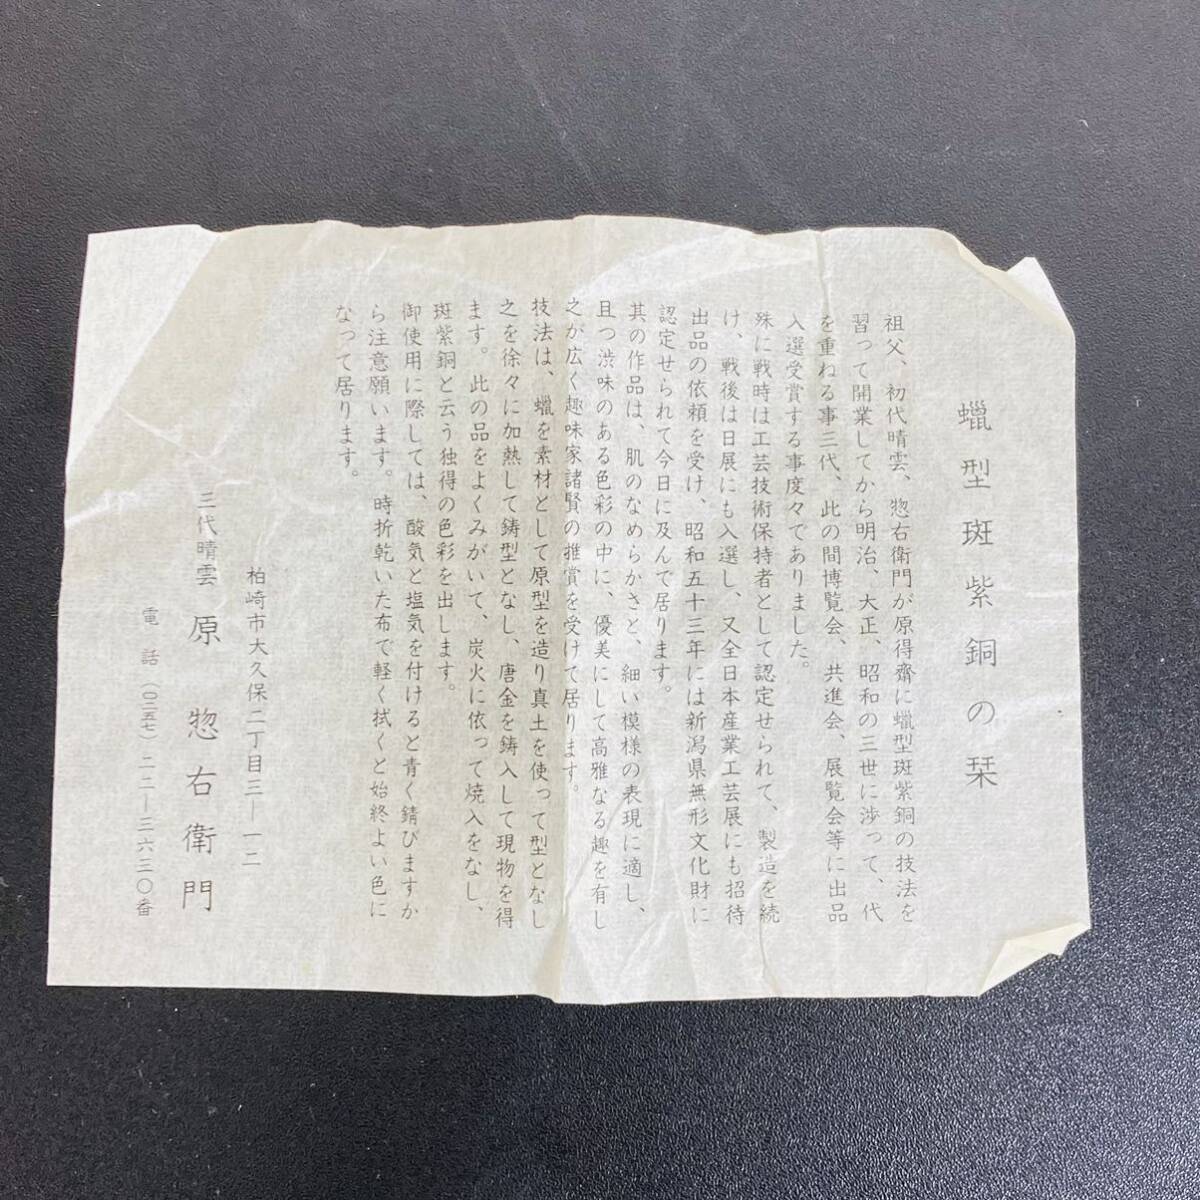 蠟型斑紫銅の栞
祖父、初代晴雲、惣右衛門が原得齋に蠟型斑紫銅の技法を
習って開業してから明治、大正、昭和の三世に渉って、代
を重ねる事三代、此の間博覧会、共進会、展覧会等に出品
入選受賞する事度々でありました。
殊に戦時は工芸技術保持者として認定せられて、製造を続
け、戦後は日展にも入選し、又全日本産業工芸展にも招待
出品の依頼を受け、昭和五十三年には新潟県無形文化財に
認定せられて今日に及んで居ります。
其の作品は、肌のなめらかさと、細い模様の表現に適し、
且つ渋味のある色彩の中に、優美にして高雅なる趣を有し
之が広く趣味家諸賢の推賞を受けて居ります。
技法は、蠟を素材として原型を造り真土を使って型となし
之を徐々に加熱して鋳型となし、唐金を鋳入して現物を得
ます。此の品をよくみがいて、炭火に依って焼入をなし、
斑紫銅と云う独得の色彩を出します。
御使用に際しては、酸気と塩気を付けると青く錆びますか
ら注意願います。時折乾いた布で軽く拭くと始終よい色に
なって居ります。
柏崎市大久保二丁目三―一二
三代晴雲 原惣右衛門
電話(〇二五七)二二―三六三〇番